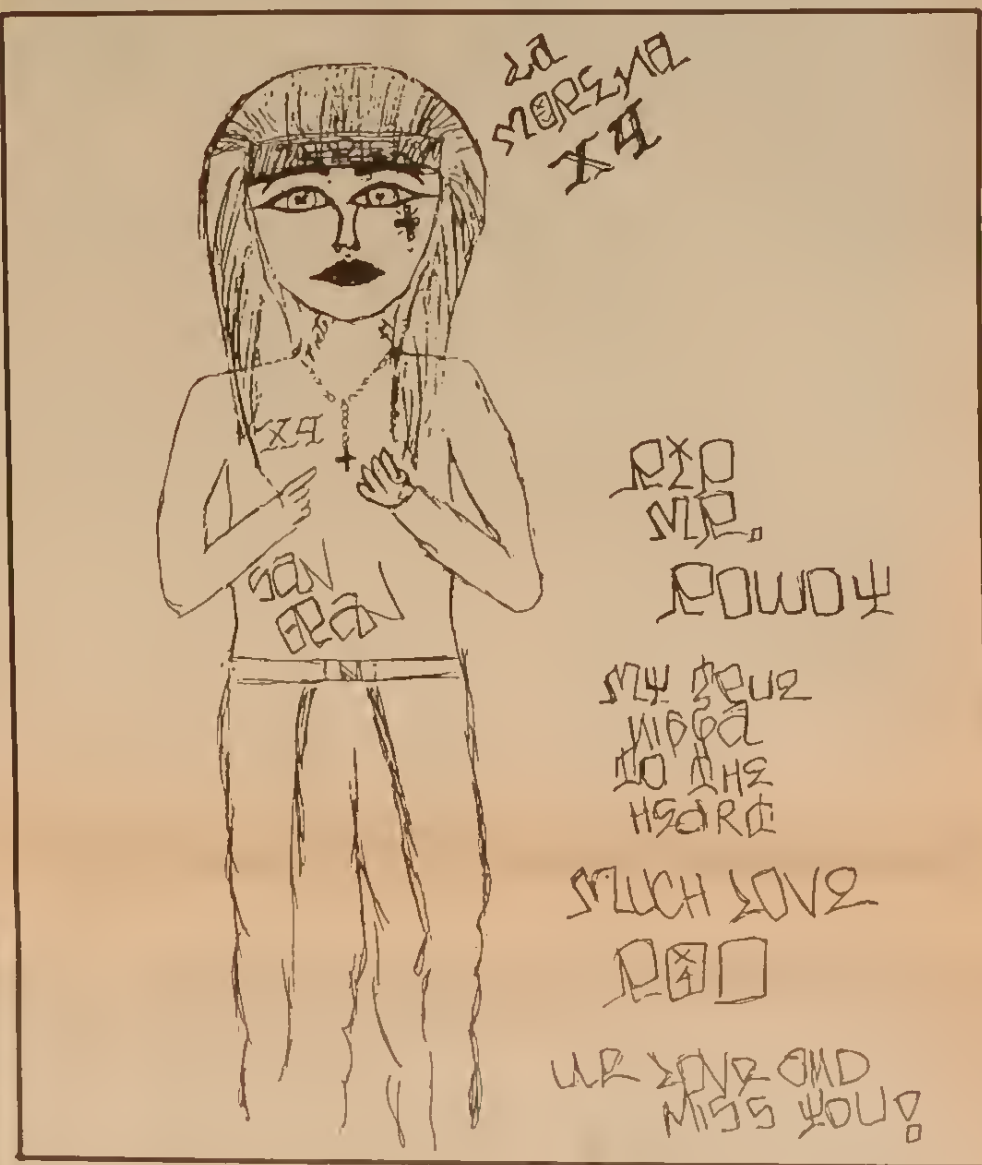 La
MORENA
X4
X4
SAN
FRAN
RIP
MR.
ROWDY
MY TRUE
NIGGA
TO THE
HEART
MUCH LOVE
ROD
X4
WE LOVE AND
MISS YOU!